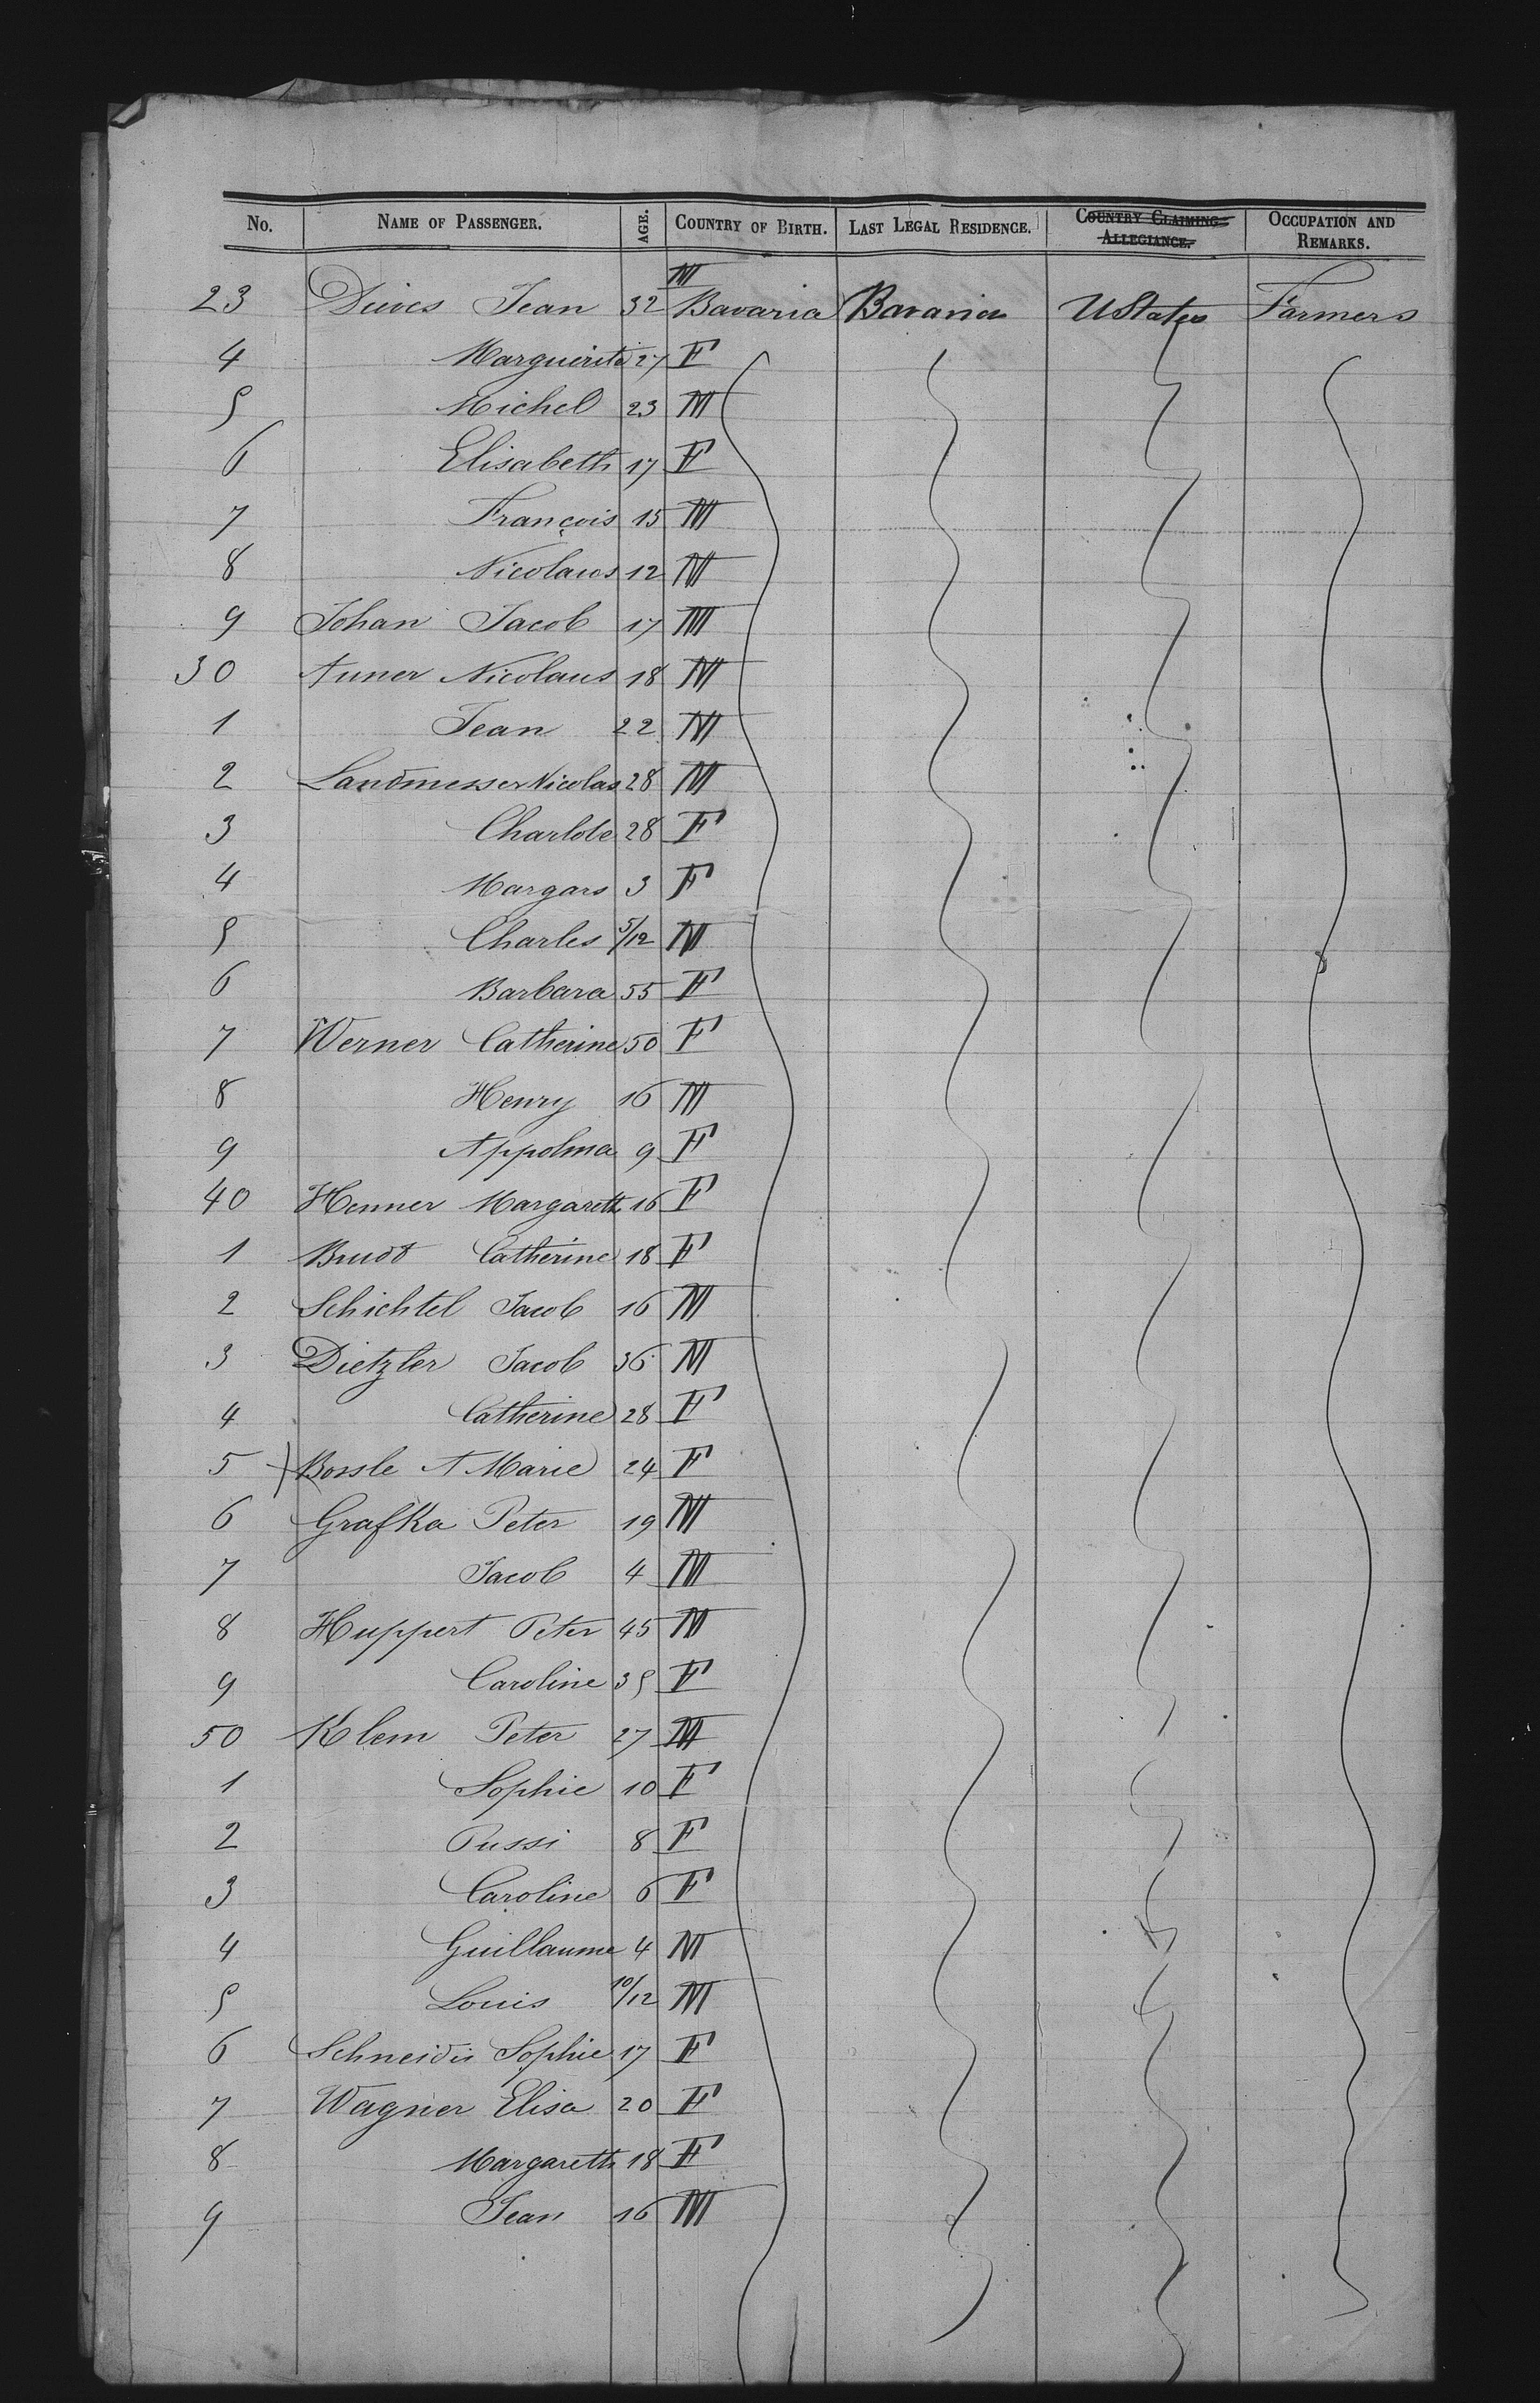 No. NAME OF PASSENGER. AGE. COUNTRY OF BIRTH. LAST LEGAL RESIDENCE. COUNTRY CLAIMING ALLEGIANCE. OCCUPATION AND REMARKS.
23 Jean 32 M Bavaria Bavaria UStates Farmers
4 27 F
5 Michel 23 M
6 Elisabeth 17 F
7 François 15 M
8 Nicolaus 12 M
9 Johan Jacob 17 M
30 Auner Nicolaus 18 M
1 Jean 22 M
2 Landmesser Nicolas 28 M
3 Charlote 28 F
4 Margars 3 F
5 Charles 5/12 M
6 Barbara 55 F
7 Werner Catherine 50 F
8 Henry 16 M
9 Appolina 9 F
40 Henner Margareth 16 F
1 Catherine 18 F
2 Schichtel Jacob 16 M
3 Dietzler Jacob 36 M
4 Catherine 28 F
5 Bossle A Marie 24 F
6 Grafka Peter 19 M
7 Jacob 4 M
8 Huppert Peter 45 M
9 Caroline 35 F
50 Klem Peter 27 M
1 Sophie 10 F
2 Pussi 8 F
3 Caroline 6 F
4 Guillaume 4 M
5 Louis 10/12 M
6 Sophie 17 F
7 Wagner Elisa 20 F
8 Margareth 18 F
9 Jean 16 M